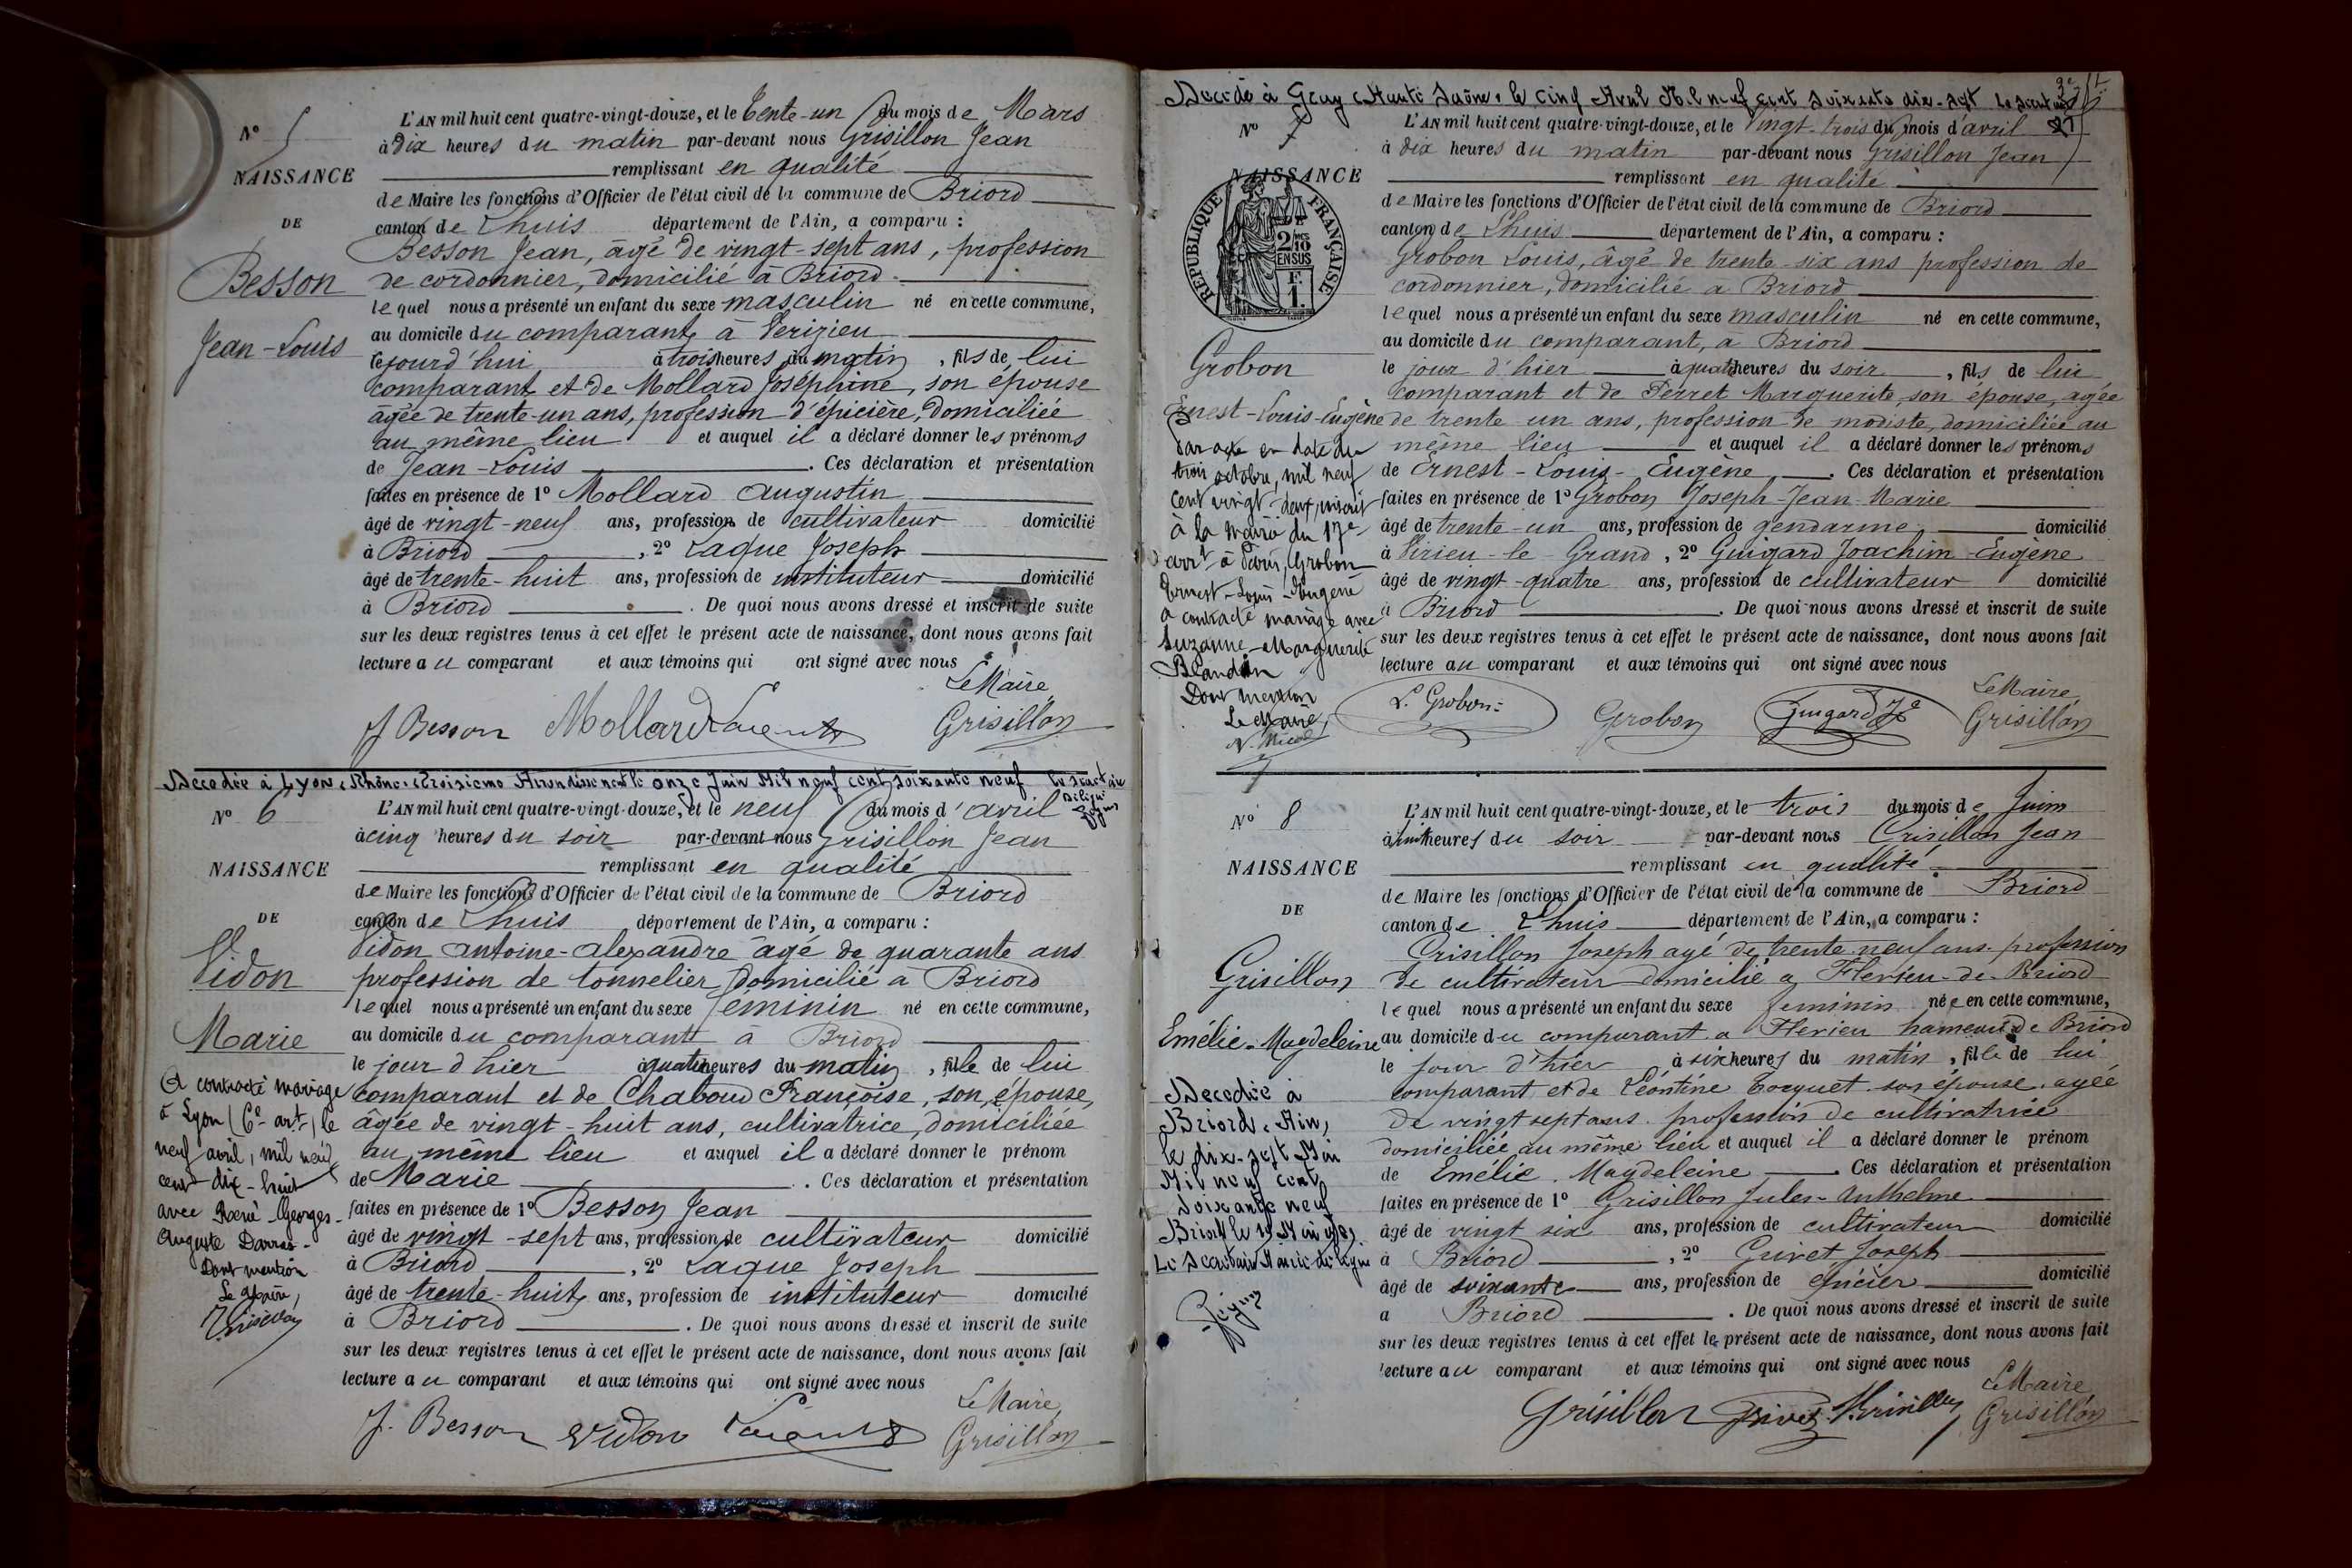 N° 5
NAISSANCE
DE
Besson
Jean-Louis
L'AN mil huit cent quatre-vingt-douze, et le trente-un du mois de Mars
à dix heures du matin par-devant nous Grisillon Jean
remplissant en qualité
de Maire les fonctions d'Officier de l'état civil de la commune de Briord
canton de Lhuis département de l'Ain, a comparu :
Besson Jean, âgé de vingt-sept ans, profession
de cordonnier, domicilié à Briord
lequel nous a présenté un enfant du sexe masculin né en cette commune,
au domicile du comparant, à Verizieu
cejourd'hui à trois heures du matin, fils de lui
comparant et de Mollard Joséphine, son épouse
âgée de trente-un ans, profession d'épicière, domiciliée
au même lieu et auquel il a déclaré donner les prénoms
de Jean-Louis. Ces déclaration et présentation
faites en présence de 1° Mollard Augustin
âgé de vingt-neuf ans, profession de cultivateur domicilié
à Briord, 2° Laque Joseph
âgé de trente-huit ans, profession de instituteur domicilié
à Briord. De quoi nous avons dressé et inscrit de suite
sur les deux registres tenus à cet effet le présent acte de naissance, dont nous avons fait
lecture au comparant et aux témoins qui ont signé avec nous
Le Maire,
J Besson Mollard Grisillon
Decedée à Lyon (Rhône) Troisieme Arrondissement le onze Juin Mil neuf cent soixante neuf
N° 6
NAISSANCE
DE
Vidon
Marie
A contracté mariage
à Lyon (6e art) le
neuf avril, mil neuf
cent dix-huit
avec René-Georges-
Auguste Darras.
Dont mention
Le Maire,
Grisillon
L'AN mil huit cent quatre-vingt-douze, et le neuf du mois d'avril
à cinq heures du soir par-devant nous Grisillon Jean
remplissant en qualité
de Maire les fonctions d'Officier de l'état civil de la commune de Briord
canton de Lhuis département de l'Ain, a comparu :
Vidon Antoine-Alexandre âgé de quarante ans
profession de tonnelier domicilié à Briord
lequel nous a présenté un enfant du sexe féminin né en cette commune,
au domicile du comparant à Briord
le jour d'hier à quatre heures du matin, fille de lui
comparant et de Chaboud Françoise, son épouse,
âgée de vingt-huit ans, cultivatrice, domiciliée
au même lieu et auquel il a déclaré donner le prénom
de Marie. Ces déclaration et présentation
faites en présence de 1° Besson Jean
âgé de vingt-sept ans, profession de cultivateur domicilié
à Briord, 2° Laque Joseph
âgé de trente-huit ans, profession de instituteur domicilié
à Briord. De quoi nous avons dressé et inscrit de suite
sur les deux registres tenus à cet effet le présent acte de naissance, dont nous avons fait
lecture au comparant et aux témoins qui ont signé avec nous
Le Maire,
J. Besson Vidon Grisillon
Decedé à Gray (Haute Saône) le Cinq Avril Mil neuf cent soixante dix-sept
N° 7
NAISSANCE
DE
RÉPUBLIQUE FRANÇAISE
2/10 MES
EN SUS
F.
1.
Grobon
Ernest-Louis-Eugène
Par acte en date du
trois octobre, mil neuf
cent vingt-deux, inscrit
à la mairie du 17e
arrt à Paris, Grobon
Ernest-Louis-Eugène
a contracté mariage avec
Suzanne-Marguerite
Blandin
Dont mention
Le Maire,
L'AN mil huit cent quatre-vingt-douze, et le vingt-trois du mois d'avril
à dix heures du matin par-devant nous Grisillon Jean
remplissant en qualité
de Maire les fonctions d'Officier de l'état civil de la commune de Briord
canton de Lhuis département de l'Ain, a comparu :
Grobon Louis, âgé de trente-six ans profession de
cordonnier, domicilié à Briord
lequel nous a présenté un enfant du sexe masculin né en cette commune,
au domicile du comparant, à Briord
le jour d'hier à quatre heures du soir, fils de lui
comparant et de Ferret Marguerite, son épouse, âgée
de trente un ans, profession de modiste, domiciliée au
même lieu et auquel il a déclaré donner les prénoms
de Ernest-Louis-Eugène. Ces déclaration et présentation
faites en présence de 1° Grobon Joseph-Jean-Marie
âgé de trente-un ans, profession de gendarme domicilié
à Virieu-le-Grand, 2° Guigard Joachim-Eugène
âgé de vingt-quatre ans, profession de cultivateur domicilié
à Briord. De quoi nous avons dressé et inscrit de suite
sur les deux registres tenus à cet effet le présent acte de naissance, dont nous avons fait
lecture au comparant et aux témoins qui ont signé avec nous
Le Maire,
L. Grobon Grobon Guigard Grisillon
N° 8
NAISSANCE
DE
Grisillon
Emélie-Magdeleine
Decedée à
Briord (Ain)
le dix-sept Mai
Mil neuf cent
soixante neuf
L'AN mil huit cent quatre-vingt-douze, et le trois du mois de Juin
à huit heures du soir par-devant nous Grisillon Jean
remplissant en qualité
de Maire les fonctions d'Officier de l'état civil de la commune de Briord
canton de Lhuis département de l'Ain, a comparu :
Grisillon Joseph agé de trente-neuf ans. profession
de cultivateur domicilié à Flevieu-de-Briord
lequel nous a présenté un enfant du sexe feminin née en cette commune,
au domicile du comparant a Flevieu hameau de Briord
le jour d'hier à six heures du matin, fille de lui
comparant et de Léontine Tocquet son épouse. agée
de vingt sept ans. profession de cultivatrice
domiciliée au même lieu et auquel il a déclaré donner le prénom
de Emélie. Magdeleine. Ces déclaration et présentation
faites en présence de 1° Grisillon Jules-Anthelme
âgé de vingt six ans, profession de cultivateur domicilié
à Briord, 2° Grivet Joseph
âgé de soixante ans, profession de épicier domicilié
a Briord. De quoi nous avons dressé et inscrit de suite
sur les deux registres tenus à cet effet le présent acte de naissance, dont nous avons fait
lecture au comparant et aux témoins qui ont signé avec nous
Le Maire,
Grisillon Grivet Grisillon Grisillon